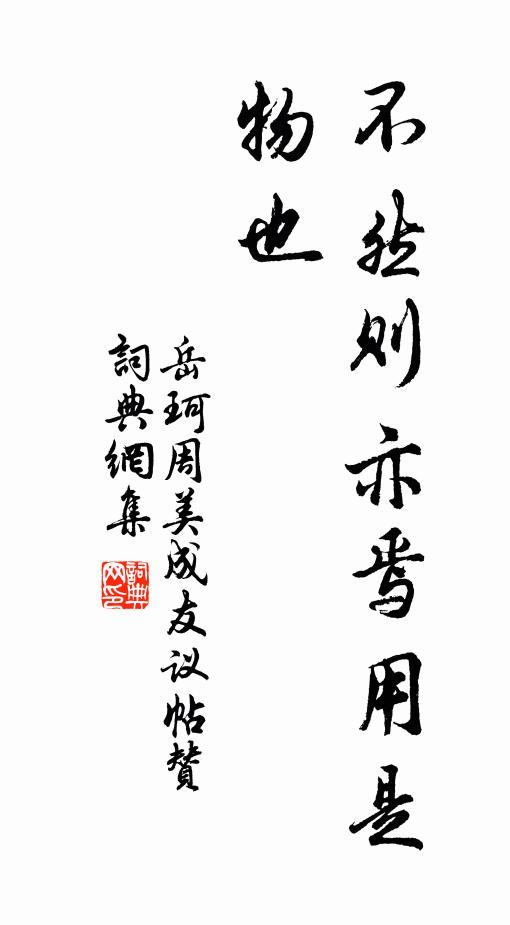 不然则亦焉用是
物也
岳珂周美成友议帖赞
詞典網集
詞典网印